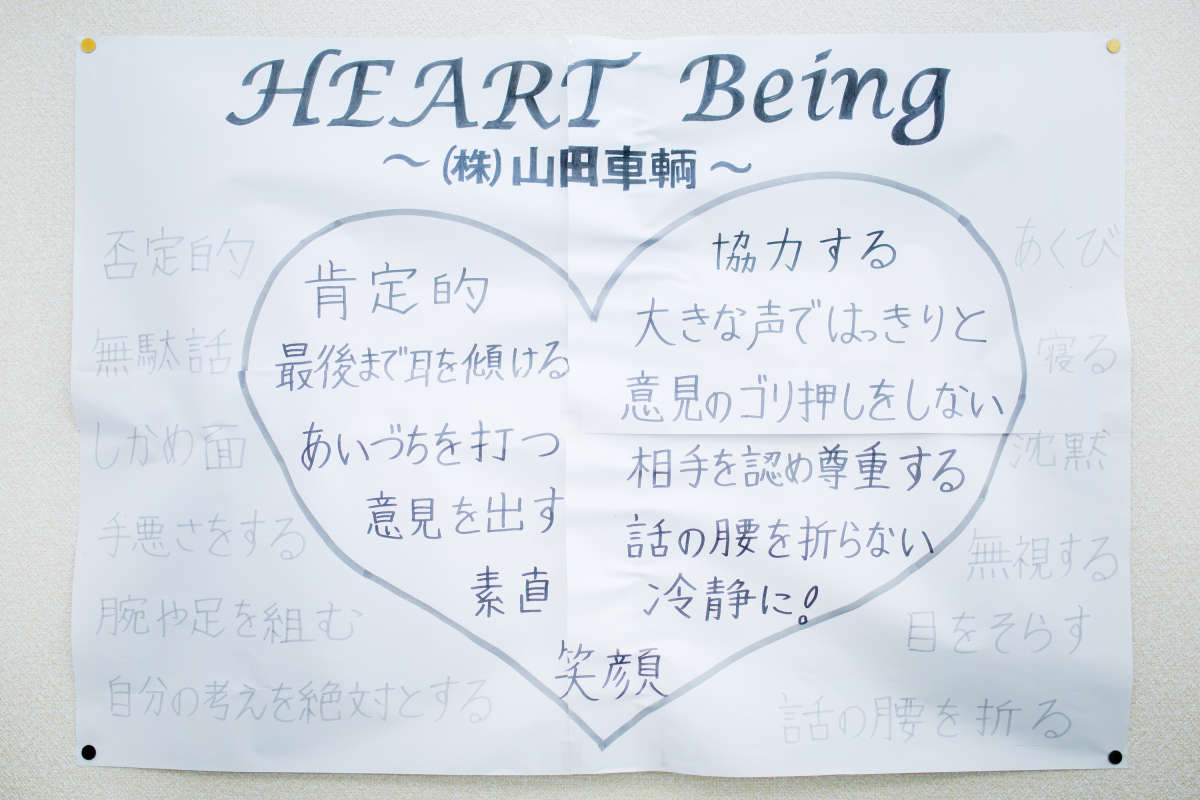 HEART Being
～㈱山田車輌～
否定的
無駄話
しかめ面
手悪さをする
腕や足を組む
自分の考えを絶対とする
肯定的
最後まで耳を傾ける
あいづちを打つ
意見を出す
素直
協力する
大きな声ではっきりと
意見のゴリ押しをしない
相手を認め尊重する
話の腰を折らない
冷静に!
笑顔
あくび
寝る
沈黙
無視する
目をそらす
話の腰を折る